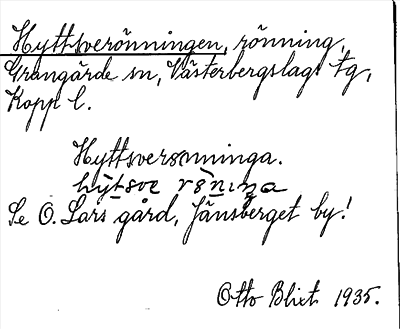 Hyttsverönningen, rönning,
Grangärde sn, Västerbergslags tg,
Kopp l.
Hyttsverönninga.
hýtsve rö̀niŋa
Se O. Lars gård, Jänsberget by!
Otto Blixt 1935.